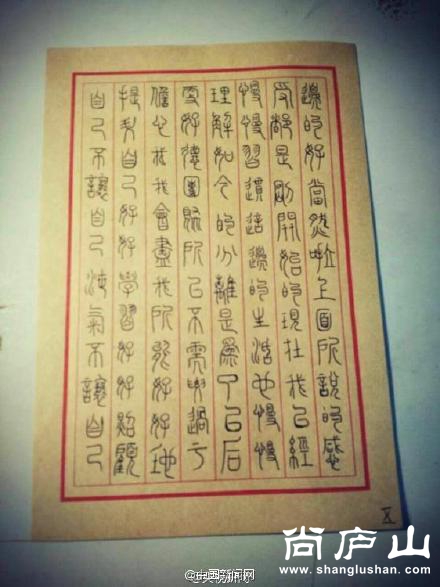 邊的好當然啦上面所說的感
受都是剛開始的現在我已經
慢慢習慣這邊的生活也慢慢
理解如今的分離是為了以后
更好德團聚所以不需要過于
擔心我我會盡我所能好好地
提醒自己好好學習好好照顧
自己不讓自己泄氣不讓自己
五
@中国新闻网
尚庐山
www.shanglushan.com